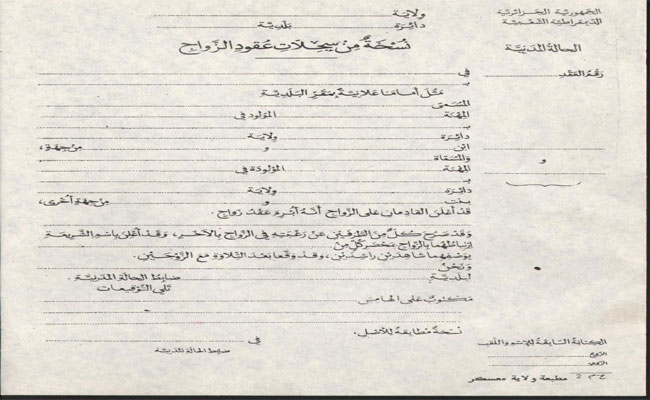 الجمهورية الجزائرية
الديمقراطية الشعبية
ولاية
دائرة بلدية
الحالة المدنية
نسخة من سجلات عقود الزواج
رقم العقد
في
بـ
مثل أمامنا علانية بمقر البلدية
المسمى
المهنة المولود في
بـ
دائرة ولاية
ابن و من جهة،
والمسماة
و
المهنة المولودة في
بـ
دائرة ولاية
بنت و من جهة أخرى،
قد أعلن القادمان على الزواج أنه أبرم عقد زواج.
وقد صرح كل من الطرفين عن رغبته في الزواج بالآخر، وقد أعلن باسم الشريعة
إرتباطهما بالزواج بمحضر كل من
بوصفهما شاهدين راشدين، وقد وقعا بعد التلاوة مع الزوجين.
ونحن
لبلدية ضابط الحالة المدنية.
تلي التوقيعات
مكتوب على الهامش
نسخة مطابقة للأصل.
في
ضابط الحالة المدنية
الكتابة السابقة للإسم واللقب
الزوج
الزوجة
ح م 2 مطبعة ولاية معسكر